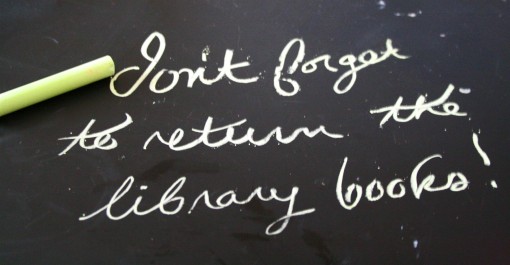 Don't forget
to return the
library books!